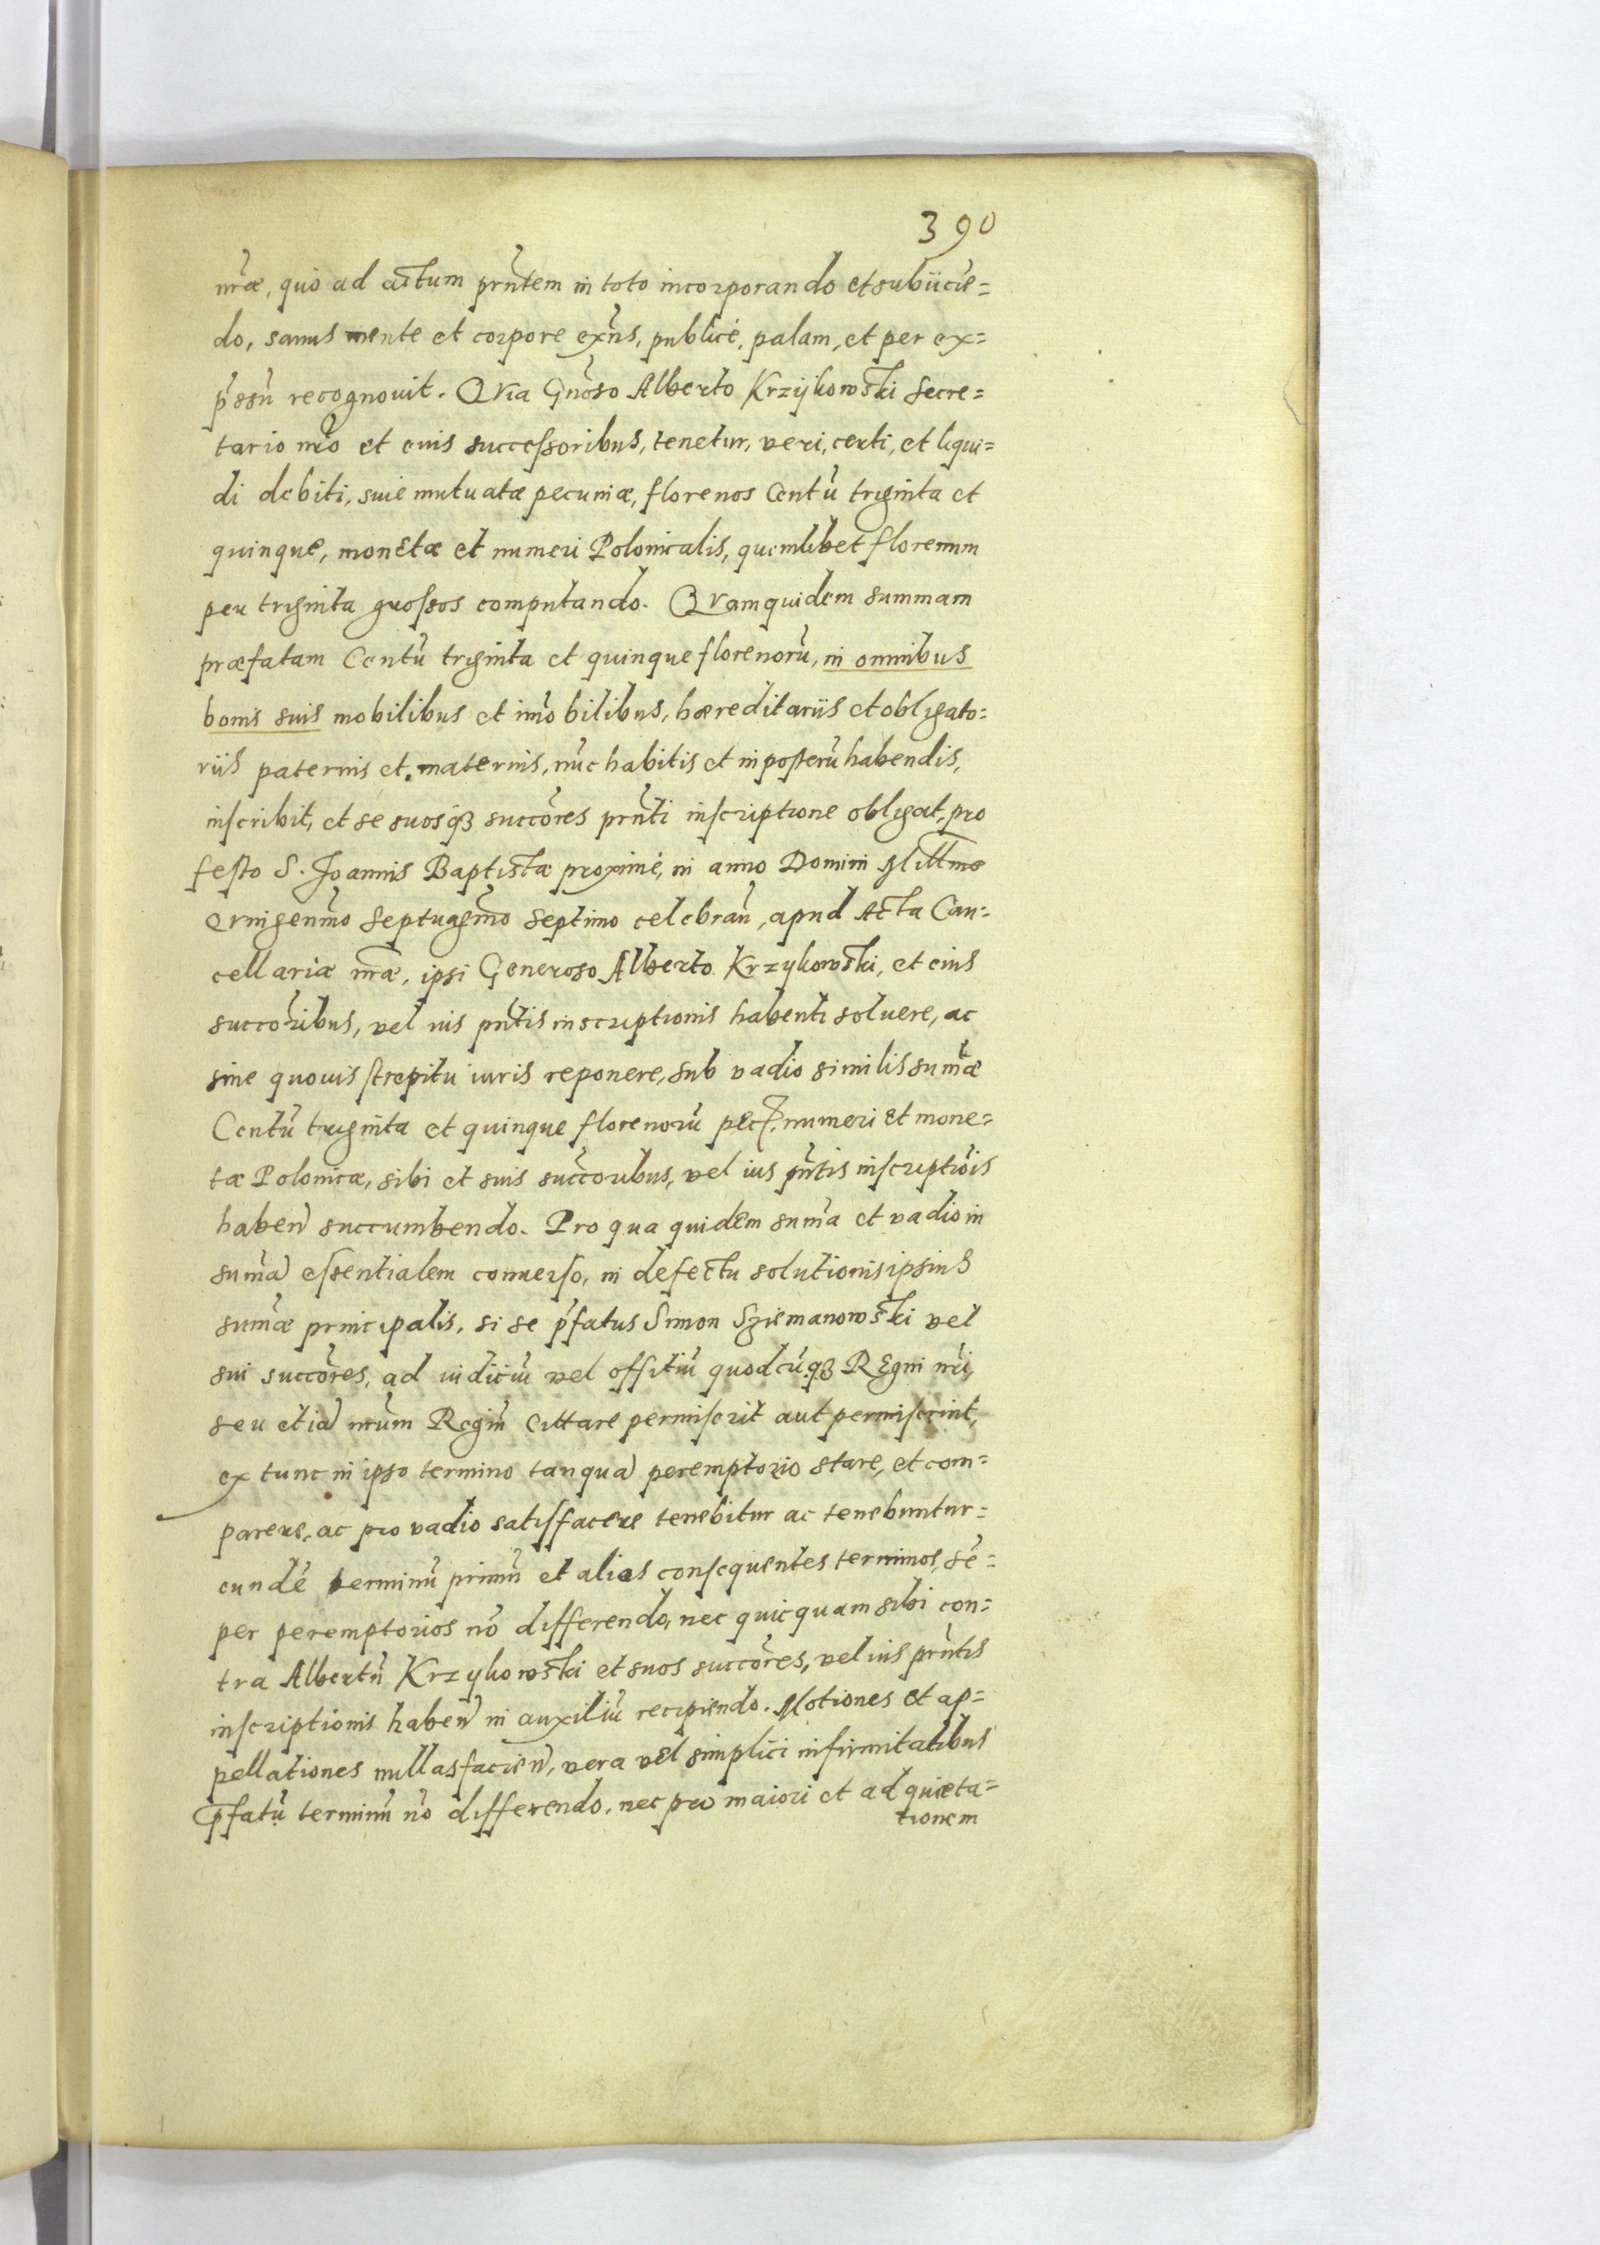 390
nr̃æ, quo ad actum prñtem in toto incorporando et subiicie=
do, sanus mente et corpore exñs, publicè, palam, et per ex=
p̃ssũ recognouit. Qvia Gñoso Alberto Krzykowski Secre=
tario nr̃o et euis successoribus, tenetur, veri, certi, et liqui=
di debiti, suie mutuatæ pecuniæ, florenos Centũ triginta et
quinque, monetæ et numeri Polonicalis, quemlibet florenum
per triginta grossos computando. Qvamquidem summam
præfatam Centũ triginta et quinque florenorũ, in omnibus
bonis suis mobilibus et im̃obilibus, hæreditariis et obligato=
riis paternis et maternis, nũc habitis et in posterũ habendis,
inscribit, et se suosqз succ̃ores prñti inscriptione obligat, pro
festo S. Joannis Baptistæ proximè, in anno Domini Millmo
Qvingenm̃o Septuagm̃o septimo celebrañ, apud Acta Can=
cellariæ nr̃æ, ipsi Generoso Alberto Krzykowski, et eius
succõribus, vel ius pñtis inscriptionis habenti soluere, ac
sine quouis strepitu iuris reponere, sub vadio similis sum̃æ
Centũ triginta et quinque florenorũ pecz. numeri et mone=
tæ Polonicæ, sibi et suis succ̃oribus, vel ius pñtis inscriptiõis
habeñ succumbendo. Pro qua quidem sum̃a et vadio in
sum̃ã essentialem conuerso, in defectu solutionis ipsius
sum̃æ principalis, si se p̃fatus Simon Sziemanowski vel
sui succ̃ores, ad iudiciũ vel offitiũ quodcũqз Regni nr̃i,
seu etiã nr̃um Regiũ cittare permiserit aut permiserint,
ex tunc in ipso termino tanquã peremptorio stare, et com=
parere, ac pro vadio satisfacere tenebitur ac tenebuntur=
eundẽ terminũ primũ et alios consequentes terminos, sẽ=
per peremptorios nõ differendo, nec quicquam sibi con=
tra Albertũ Krzykowski et suos succ̃ores, vel ius prñtis
inscriptionis habeñ in auxiliũ recipiendo. Motiones et ap=
pellationes nullas facieñ, vera vel simplici infirmitatibus
p̃fatũ terminũ nõ differendo, nec pro maiori et ad quieta=
tionem